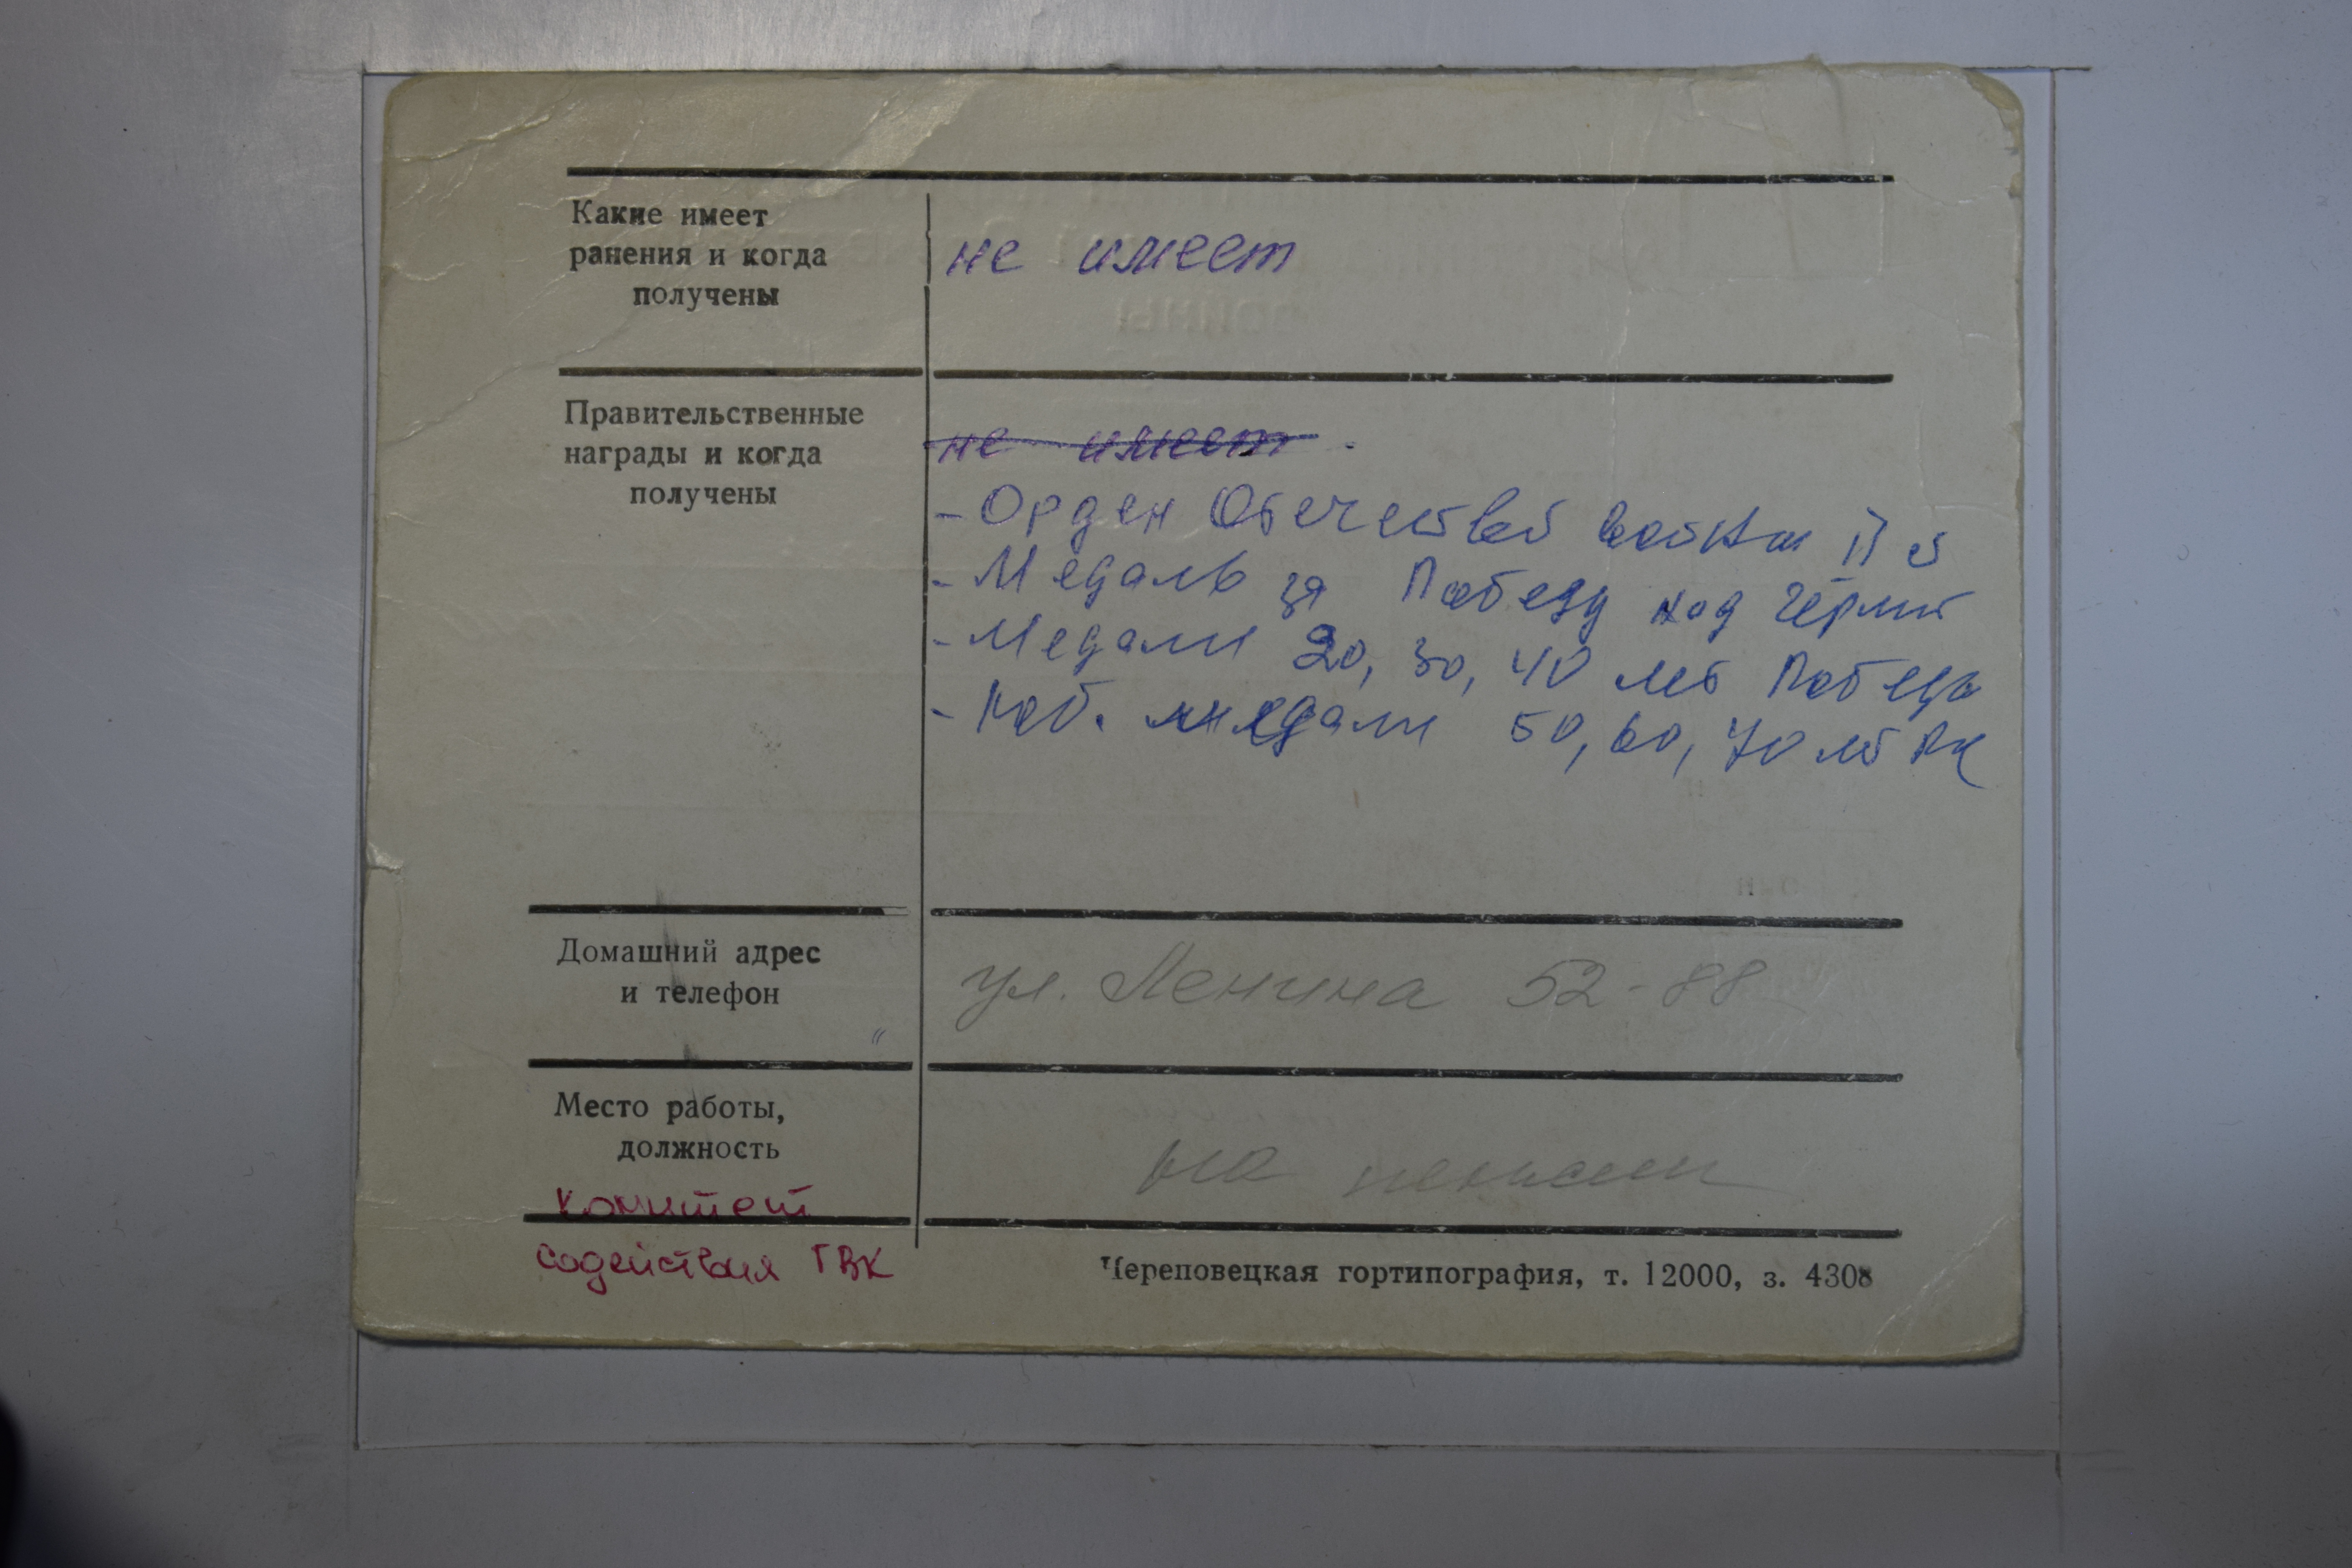 Какие имеет
ранения и когда
получены
не имеет
Правительственные
награды и когда
получены
не имеет.
- Орден Отечествой войны II с
- Медаль за Победу над Герм
- Медали 20, 30, 40 лет Победы
- Юб. медали 50, 60, 70 лет
Домашний адрес
и телефон
ул. Ленина 52-88
Место работы,
должность
на пенсии
Комитет
содействия ГВК
Череповецкая гортипография, т. 12000, з. 4308